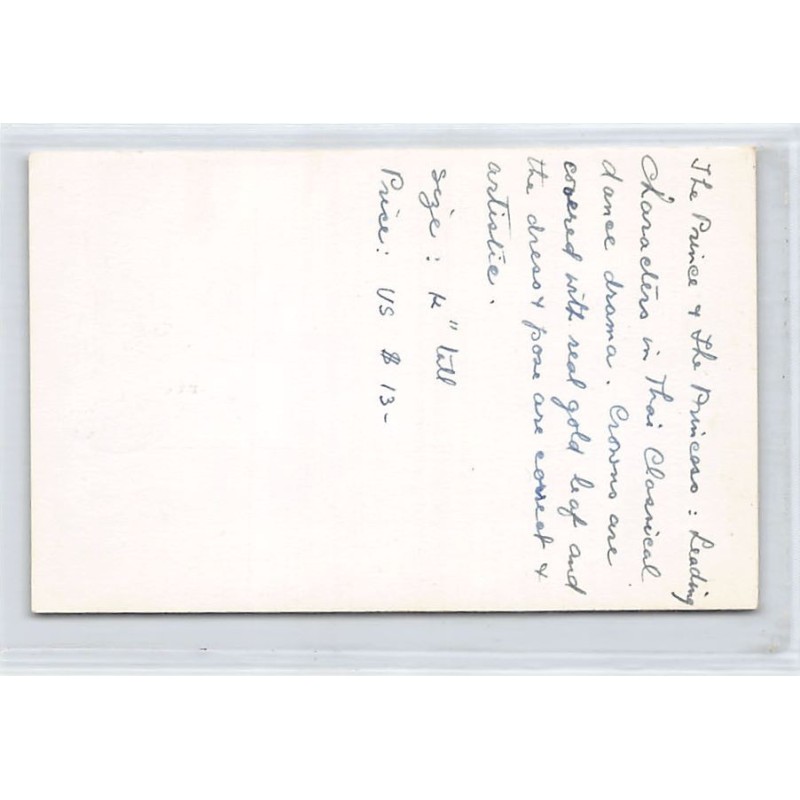 The Prince & The Princess : Leading
Characters in Thai Classical
dance drama. Crowns are
covered with real gold leaf and
the dress & pose are correct &
artistic.
Size : " tall
Price : US $ 13-